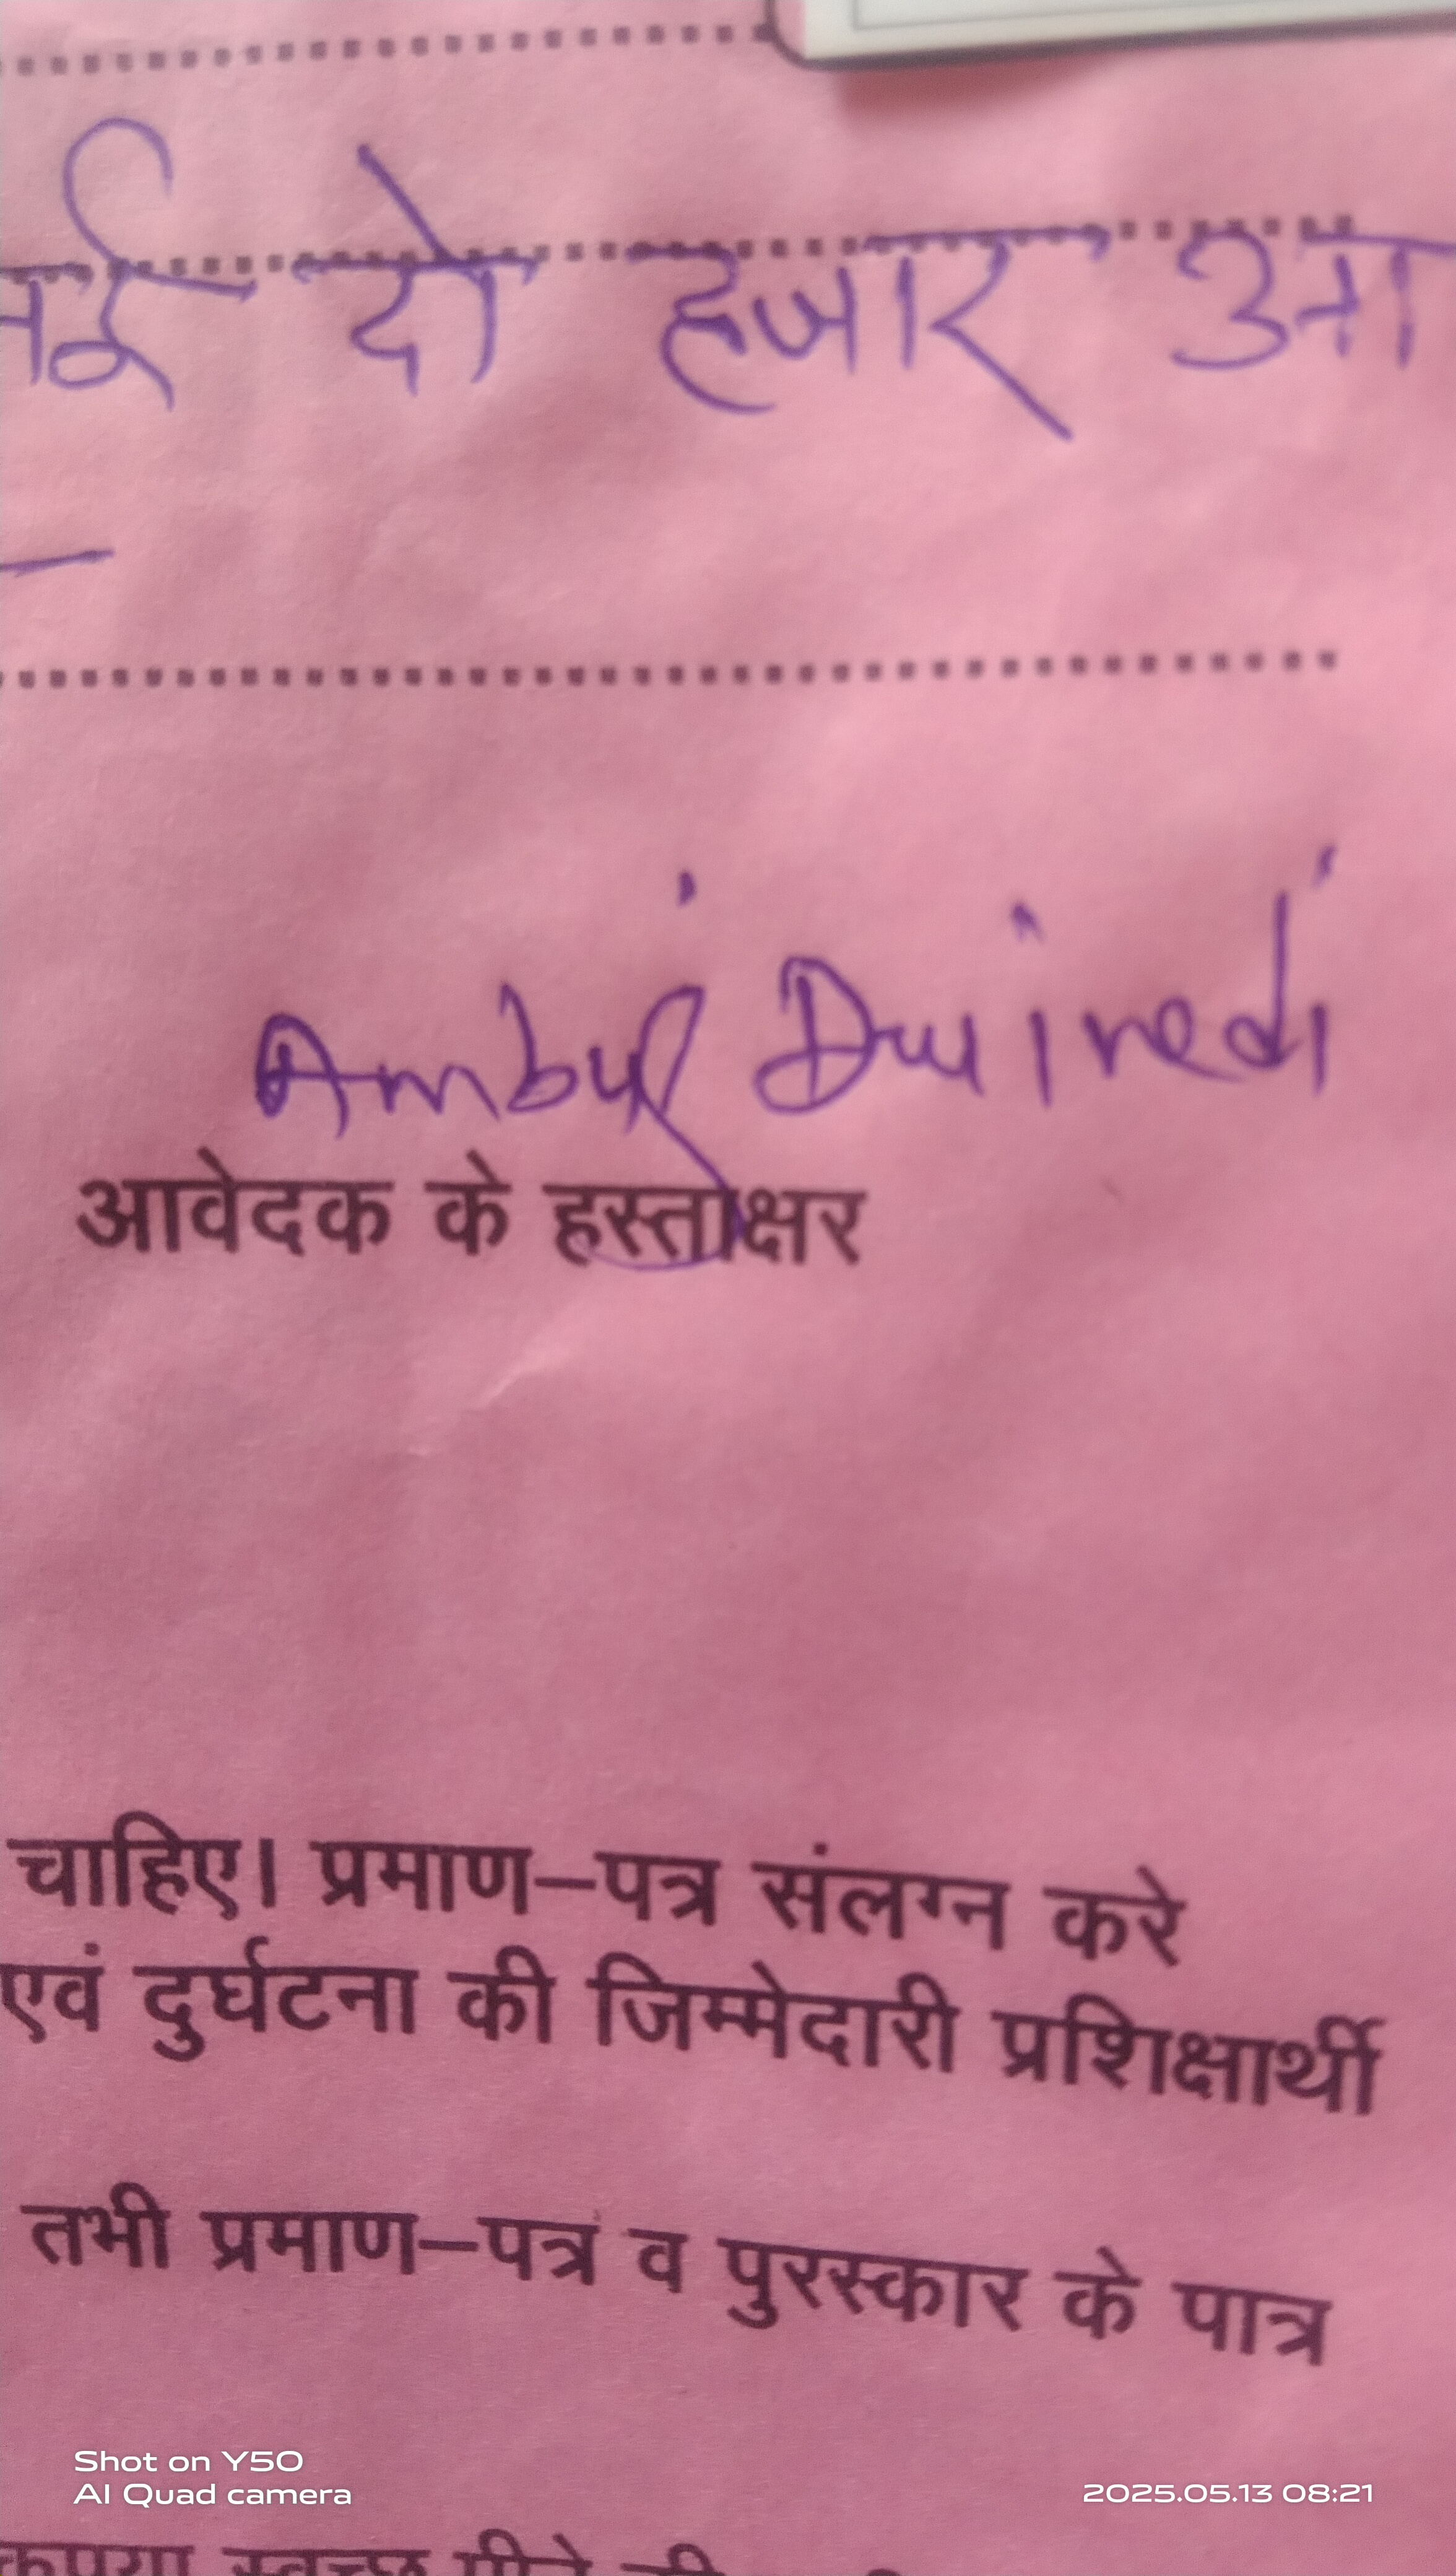 मई दो हजार
Ambuj Dwivedi
आवेदक के हस्ताक्षर
चाहिए। प्रमाण–पत्र संलग्न करे
एवं दुर्घटना की जिम्मेदारी प्रशिक्षार्थी
तभी प्रमाण–पत्र व पुरस्कार के पात्र
Shot on Y50
AI Quad camera
2025.05.13 08:21